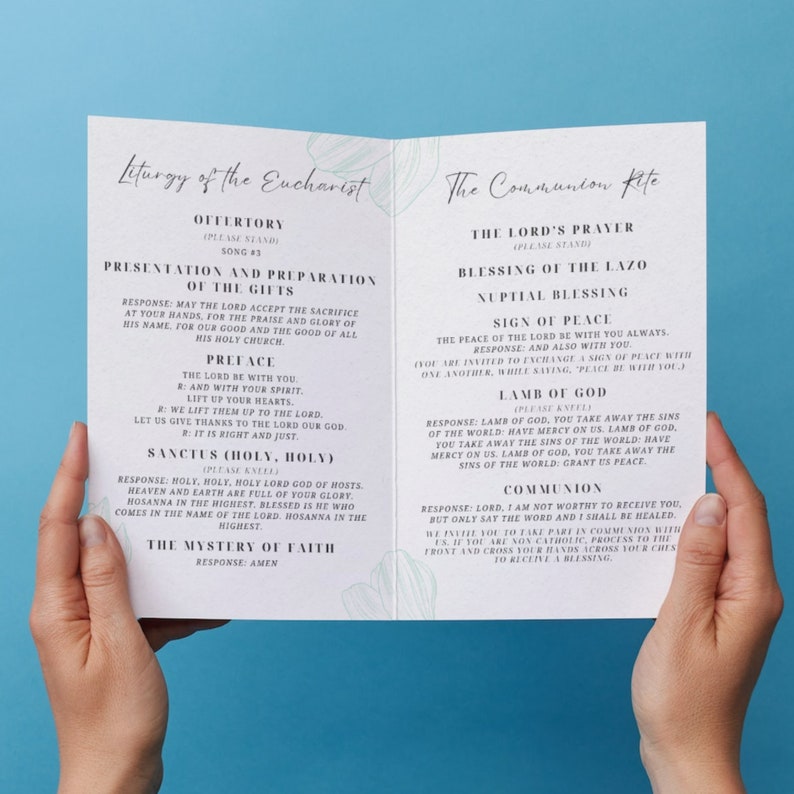 Liturgy of the Eucharist
OFFERTORY
(PLEASE STAND)
SONG #3
PRESENTATION AND PREPARATION
OF THE GIFTS
RESPONSE: MAY THE LORD ACCEPT THE SACRIFICE
AT YOUR HANDS, FOR THE PRAISE AND GLORY OF
HIS NAME, FOR OUR GOOD AND THE GOOD OF ALL
HIS HOLY CHURCH.
PREFACE
THE LORD BE WITH YOU.
R: AND WITH YOUR SPIRIT.
LIFT UP YOUR HEARTS.
R: WE LIFT THEM UP TO THE LORD.
LET US GIVE THANKS TO THE LORD OUR GOD.
R: IT IS RIGHT AND JUST.
SANCTUS (HOLY, HOLY)
(PLEASE KNEEL)
RESPONSE: HOLY, HOLY, HOLY LORD GOD OF HOSTS.
HEAVEN AND EARTH ARE FULL OF YOUR GLORY.
HOSANNA IN THE HIGHEST. BLESSED IS HE WHO
COMES IN THE NAME OF THE LORD. HOSANNA IN THE
HIGHEST.
THE MYSTERY OF FAITH
RESPONSE: AMEN
The Communion Rite
THE LORD'S PRAYER
(PLEASE STAND)
BLESSING OF THE LAZO
NUPTIAL BLESSING
SIGN OF PEACE
THE PEACE OF THE LORD BE WITH YOU ALWAYS.
RESPONSE: AND ALSO WITH YOU.
(YOU ARE INVITED TO EXCHANGE A SIGN OF PEACE WITH
ONE ANOTHER, WHILE SAYING, "PEACE BE WITH YOU.)
LAMB OF GOD
(PLEASE KNEEL)
RESPONSE: LAMB OF GOD, YOU TAKE AWAY THE SINS
OF THE WORLD: HAVE MERCY ON US. LAMB OF GOD,
YOU TAKE AWAY THE SINS OF THE WORLD: HAVE
MERCY ON US. LAMB OF GOD, YOU TAKE AWAY THE
SINS OF THE WORLD: GRANT US PEACE.
COMMUNION
RESPONSE: LORD, I AM NOT WORTHY TO RECEIVE YOU,
BUT ONLY SAY THE WORD AND I SHALL BE HEALED.
WE INVITE YOU TO TAKE PART IN COMMUNION WITH
US. IF YOU ARE NON-CATHOLIC, PROCESS TO THE
FRONT AND CROSS YOUR HANDS ACROSS YOUR CHEST
TO RECEIVE A BLESSING.